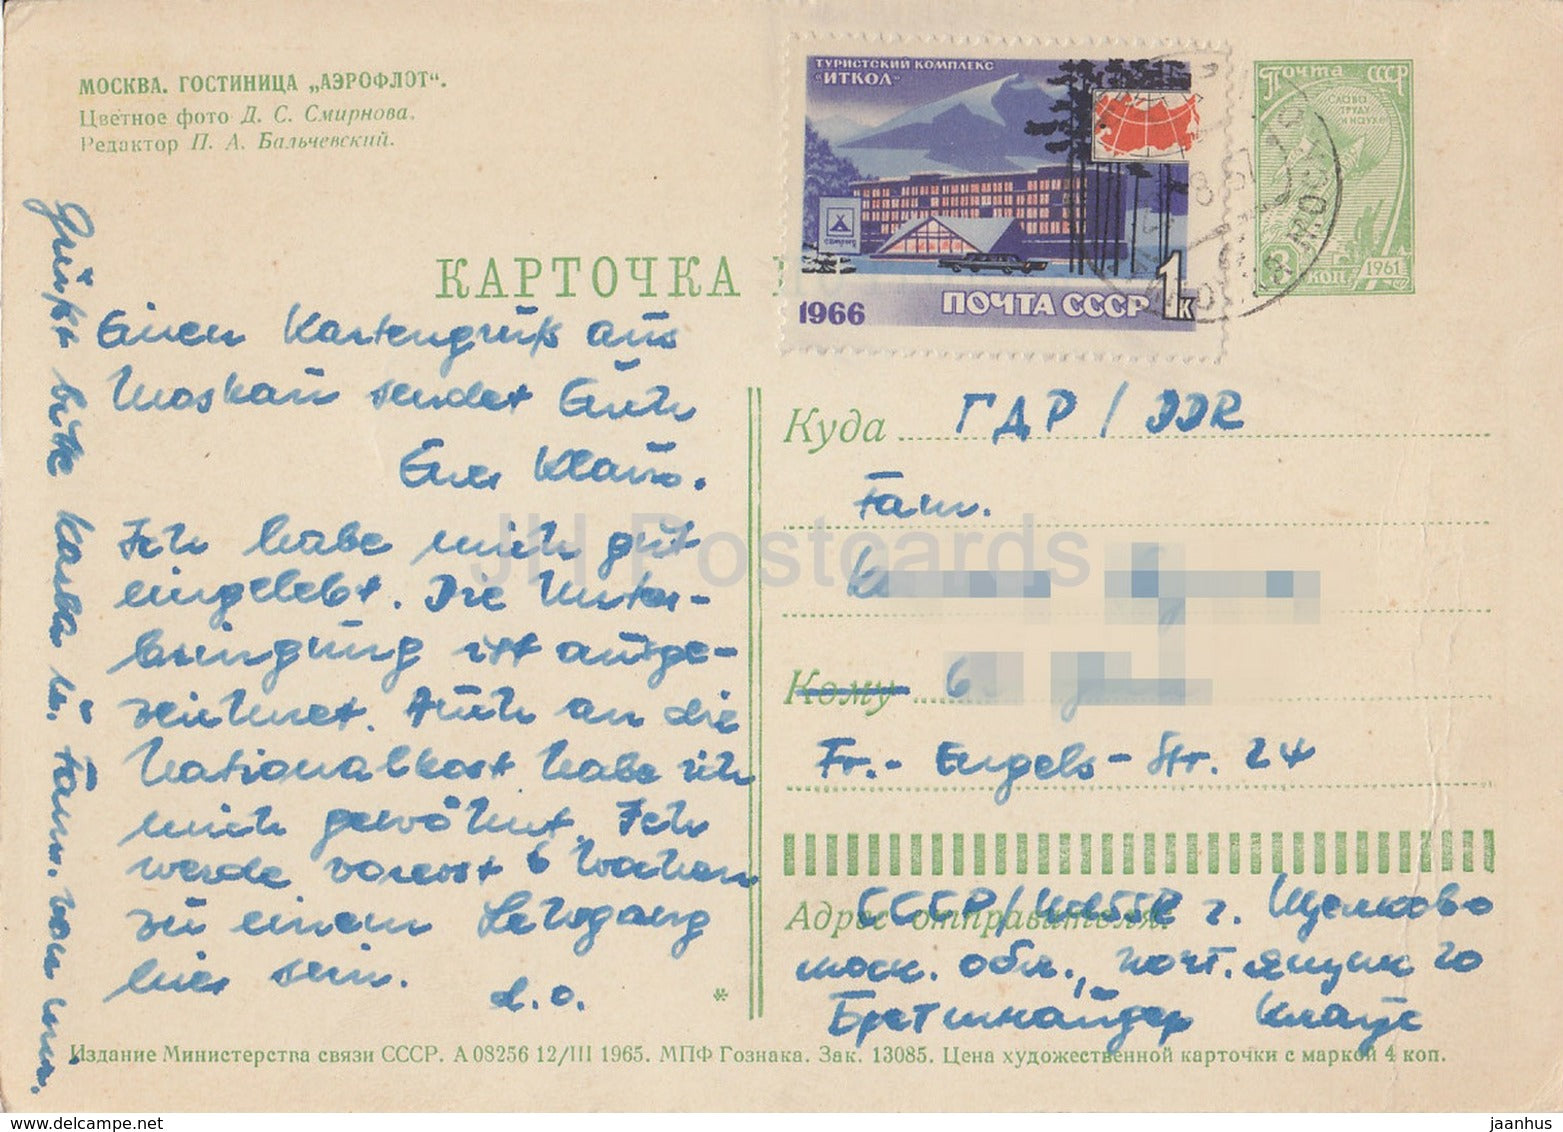 МОСКВА. ГОСТИНИЦА „АЭРОФЛОТ“.
Цветное фото Д. С. Смирнова.
Редактор П. А. Бальчевский.
ТУРИСТСКИЙ КОМПЛЕКС
«ИТКОЛ»
camping
1966 ПОЧТА СССР 1к
Почта СССР
СЛАВА
ТРУДУ
И НАУКЕ
3 КОП 1961
МОСКВА
КАРТОЧКА
Einen Kartengruß aus
Moskau sendet Euch
Euer Klaus.
Ich habe mich gut
eingelebt. Die Unter-
bringung ist ausge-
zeichnet. Auch an die
Nationalkost habe ich
mich gewöhnt. Ich
werde vorerst 6 Wochen
zu einem Lehrgang
hier sein. d.o.
Grüßt bitte u. Fam. von mir.
Куда ГДР / DDR
Fam.
Кому 6
Fr.-Engels-Str. 24
Адрес отправителя:
СССР/UdSSR г. Щелково
моск. обл., почт. ящик 20
Бретшнайдер Клаус
*
Издание Министерства связи СССР. А 08256 12/III 1965. МПФ Гознака. Зак. 13085. Цена художественной карточки с маркой 4 коп.
JH Postcards
www.delcampe.net
jaanhus